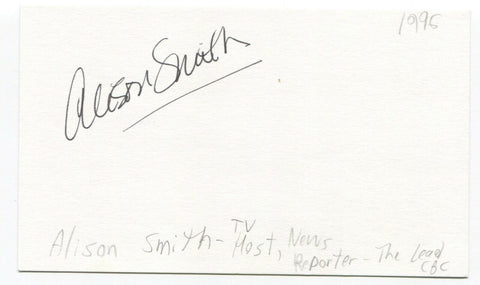 1996
Alison Smith
Alison Smith - TV Host, News
Reporter - The Lead
CBC